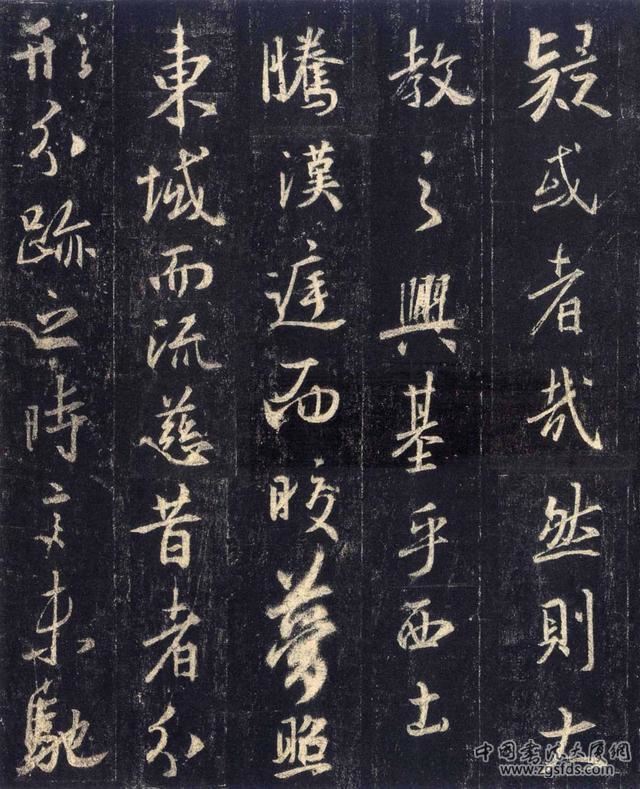 疑或者哉然則大
教之興基乎西土
騰漢庭而皎夢照
東域而流慈昔者分
形分跡之時言未馳
中國書法大厦網
www.zgsfds.com